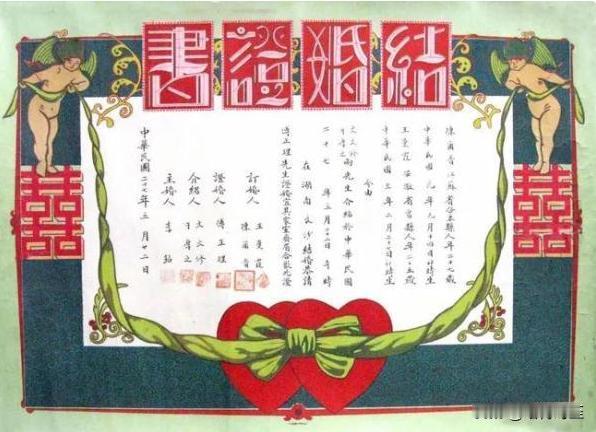 結婚證書
陳 音江蘇省 縣人年二十七歲
中華民國元年九月十四日 時生
王曼霞安徽省 縣人年二十五歲
中華民國三年二月二十七日 時生
今由
文文修
于尊之
兩先生介紹於中華民國
二十七年五月十二日午時
在湖南長沙結婚恭請
傅正理先生證婚宜其家室
訂婚人
王曼霞
陳 音
證婚人 傅正理
介紹人
文文修
于尊之
主婚人 李
中華民國二十七年五月十二日